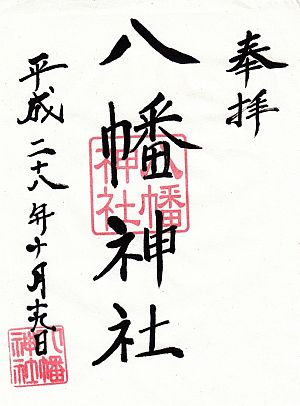 奉拝
八幡神社
八幡神社
平成二十八年十月十九日
八幡神社